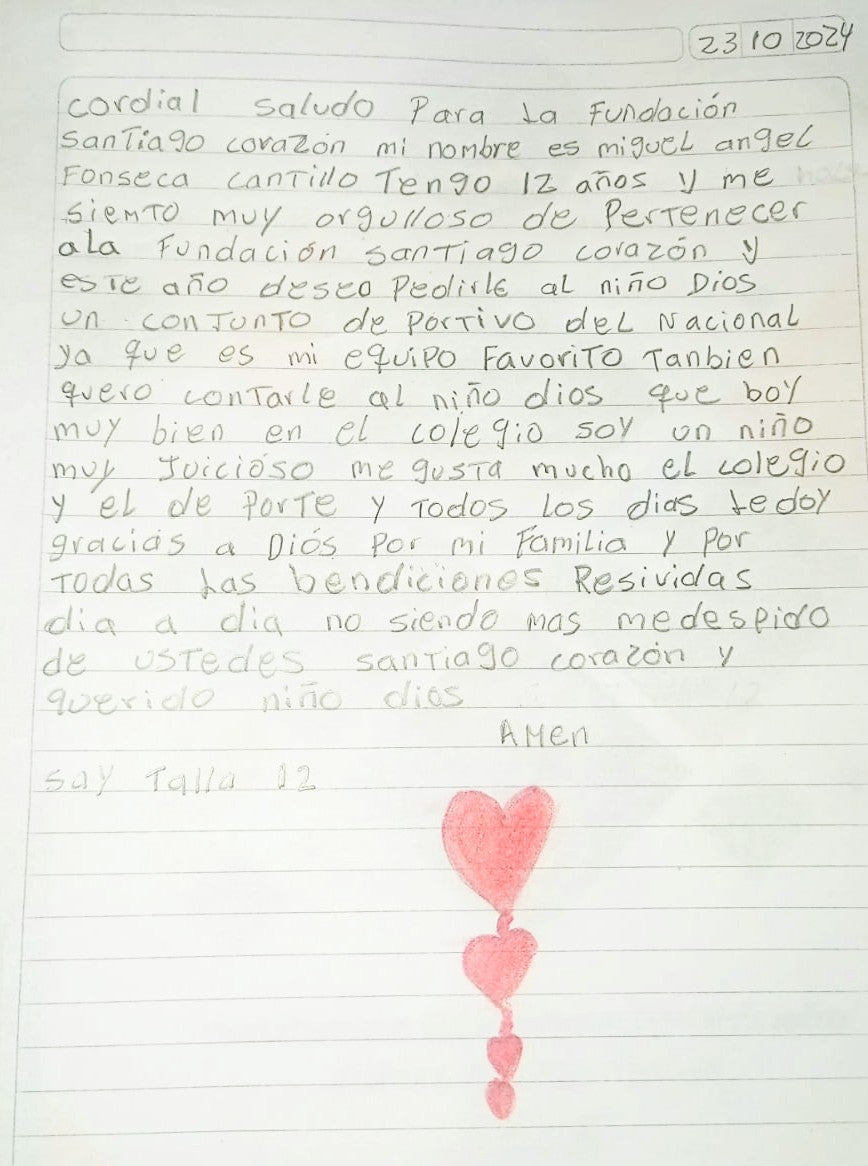 23 10 2024
cordial saludo Para La Fundación
SanTiago corazón mi nombre es miguel angel
Fonseca canTillo Tengo 12 años y me
siemTo muy orgulloso de PerTenecer
ala Fundación sanTiago corazón y
esTe año deseo Pedirle al niño Dios
un conJunTo de PorTivo del Nacional
ya que es mi equipo FavoriTo Tanbien
quero conTarle al niño dios que boy
muy bien en el colegio soy un niño
muy Juicioso me gusTa mucho el colegio
y el de PorTe y Todos los dias ledoy
gracias a Diós Por mi Familia y Por
Todas Las bendiciones Resividas
dia a dia no siendo mas medespido
de usTedes sanTiago corazón y
querido niño dios
AMen
say Talla 12